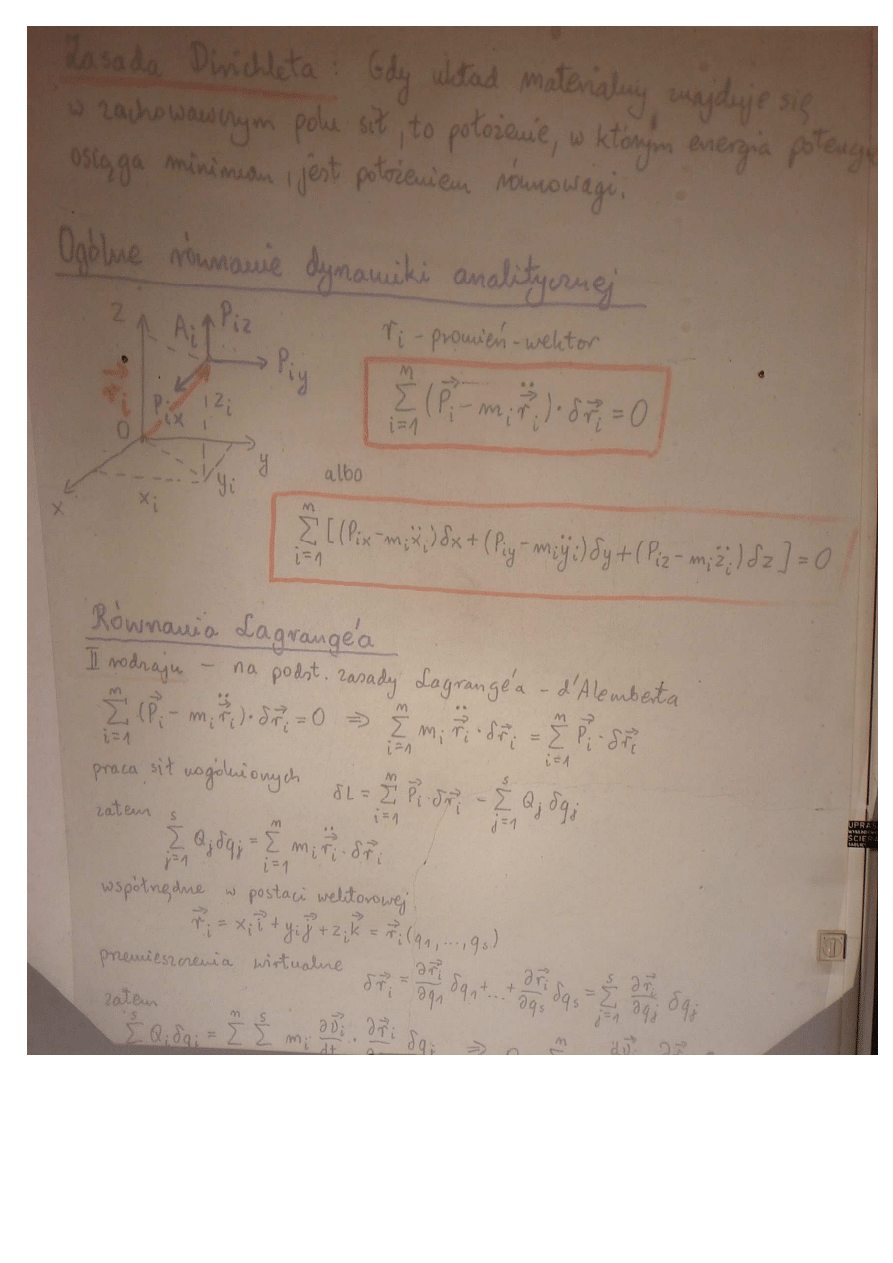 Zasada Dirichleta: Gdy układ materialny znajduje się
w zachowawczym polu sił, to położenie, w którym energia potencj
osiąga minimum, jest położeniem równowagi.
Ogólne równanie dynamiki analitycznej
z A_i P_iz
r_i - promień-wektor
P_iy
\vec{r}_i P_ix z_i
0
y
x x_i y_i
\sum_{i=1}^{n} (\vec{P}_i - m_i \ddot{\vec{r}}_i) · δ\vec{r}_i = 0
albo
\sum_{i=1}^{n} [(P_ix - m_i \ddot{x}_i) δx + (P_iy - m_i \ddot{y}_i) δy + (P_iz - m_i \ddot{z}_i) δz] = 0
Równania Lagrange'a
II rodzaju - na podst. zasady Lagrange'a - d'Alemberta
\sum_{i=1}^{n} (\vec{P}_i - m_i \ddot{\vec{r}}_i) · δ\vec{r}_i = 0 ⇒ \sum_{i=1}^{n} m_i \ddot{\vec{r}}_i · δ\vec{r}_i = \sum_{i=1}^{n} \vec{P}_i · δ\vec{r}_i
praca sił uogólnionych
δL = \sum_{i=1}^{n} \vec{P}_i · δ\vec{r}_i - \sum_{j=1}^{s} Q_j δq_j
zatem
\sum_{j=1}^{s} Q_j δq_j = \sum_{i=1}^{n} m_i \ddot{\vec{r}}_i · δ\vec{r}_i
współrzędne w postaci wektorowej
\vec{r}_i = x_i \vec{i} + y_i \vec{j} + z_i \vec{k} = \vec{r}_i (q_1, ..., q_s)
przemieszczenia wirtualne
δ\vec{r}_i = \frac{∂\vec{r}_i}{∂q_1} δq_1 + ... + \frac{∂\vec{r}_i}{∂q_s} δq_s = \sum_{j=1}^{s} \frac{∂\vec{r}_i}{∂q_j} δq_j
zatem